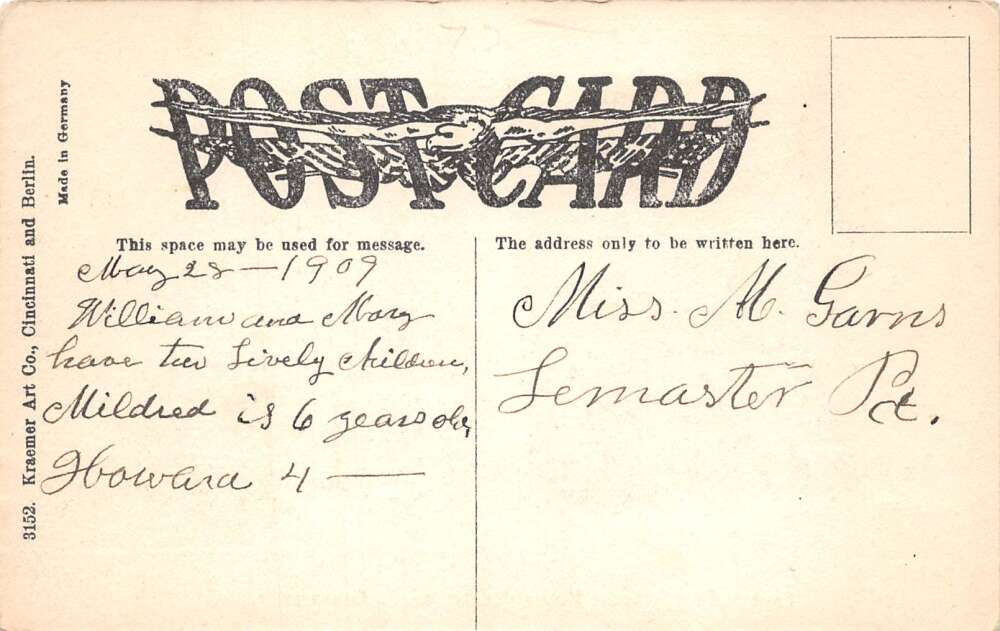 POST CARD
Made in Germany
3152. Kraemer Art Co., Cincinnati and Berlin.
This space may be used for message.
May 28 - 1909
William and Mary
have two Lively children,
Mildred is 6 years old,
Howard 4 —
The address only to be written here.
Miss. M. Garns
Lemaster Pa.